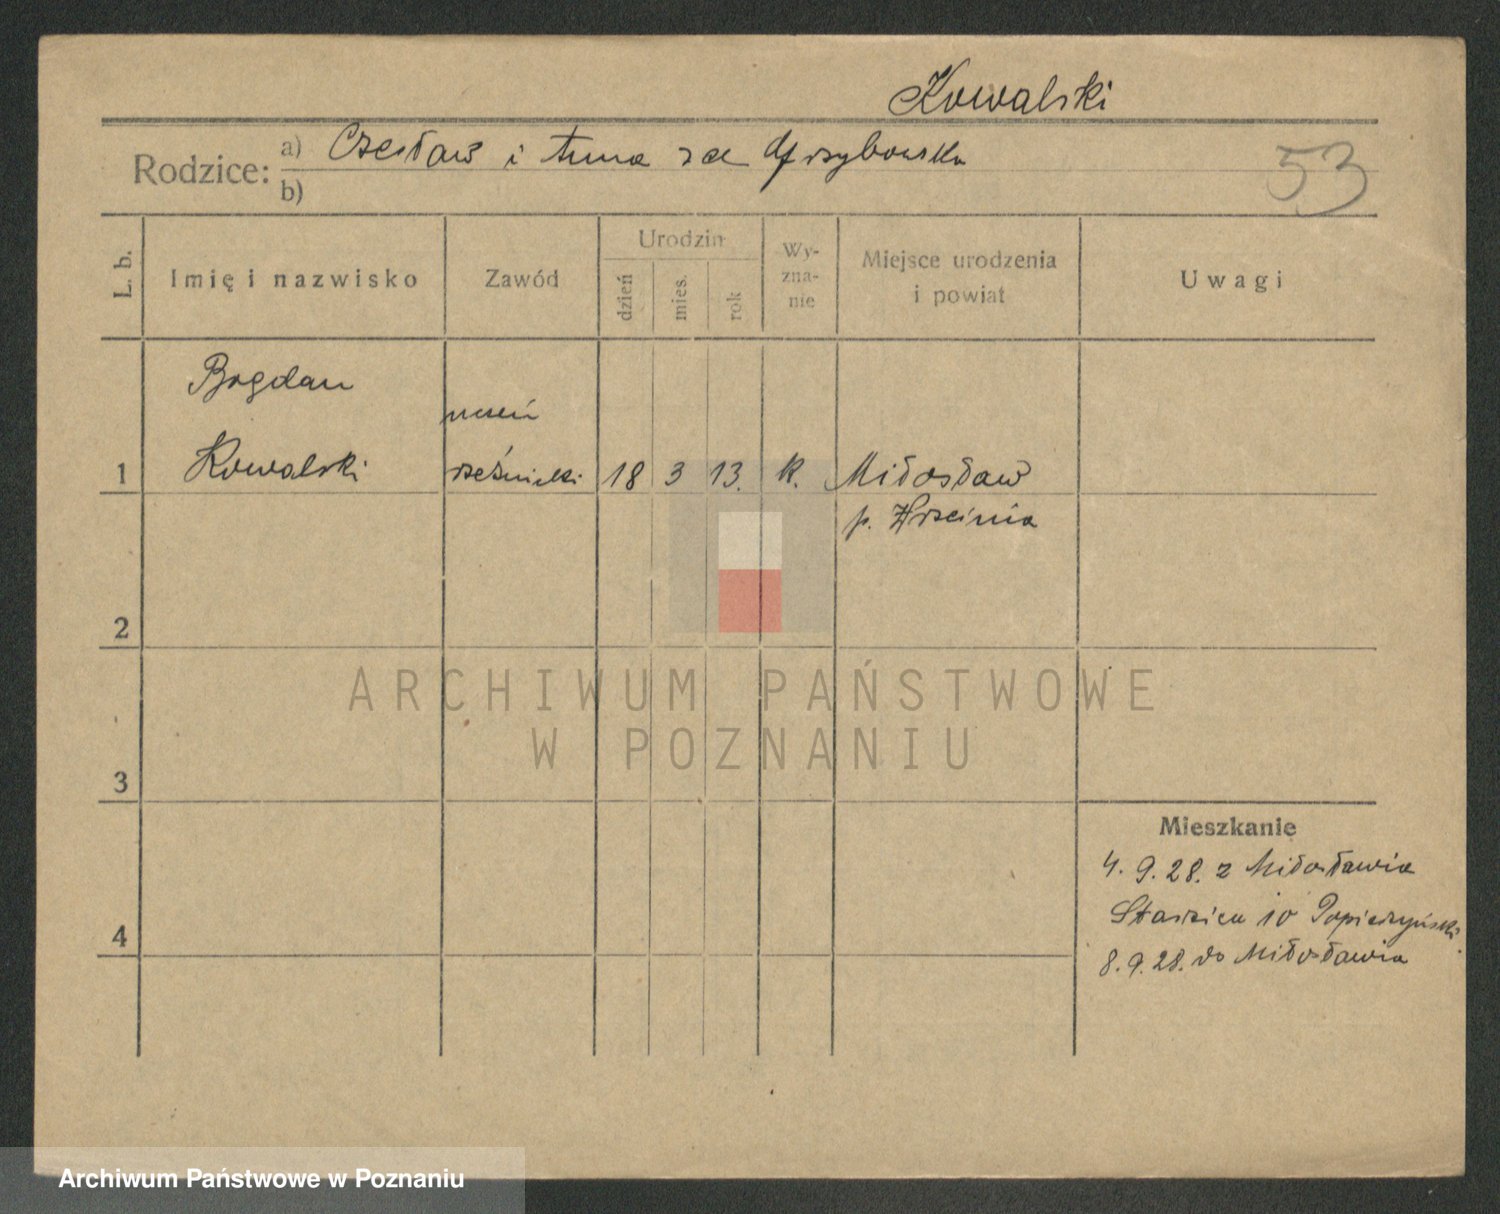 Kowalski
Rodzice:
a) Czesław i Anna z d Grzybowska
b)
53
L. b.
Imię i nazwisko
Zawód
Urodzin
dzień
mies.
rok
Wy-
zna-
nie
Miejsce urodzenia
i powiat
Uwagi
Bogdan
uczeń
1 Kowalski rzeźnicki 18 3 13. k. Miłosław
p. Września
2
ARCHIWUM PAŃSTWOWE
W POZNANIU
3
Mieszkanie
4. 9. 28. z Miłosławia
10
4
8. 9. 28. do Miłosławia
Archiwum Państwowe w Poznaniu